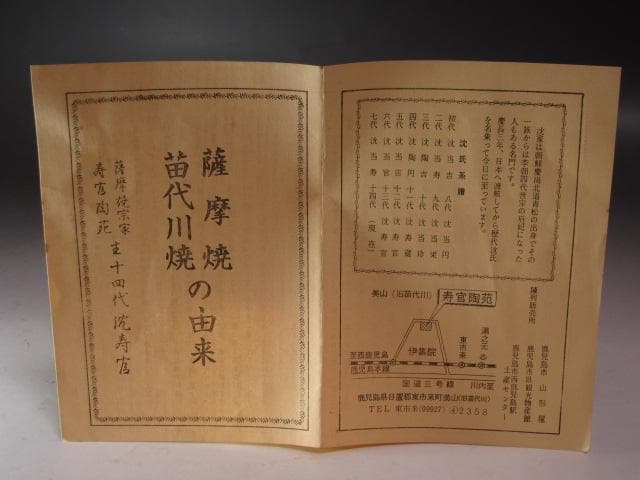 薩摩焼
苗代川焼の由来
薩摩焼宗家
寿官陶苑 主十四代沈寿官
沈家は朝鮮慶尚北道青松の出身でその
一族からは李朝四代世宗の后妃になった
人もある名門です。
慶長三年、日本へ渡航してから歴代沈氏
を名乗って今日に至っています。
沈氏系譜
初代 沈当吉 八代 沈当円
二代 沈当寿 九代 沈当栄
三代 沈陶吉 十代 沈当珍
四代 沈陶円 十一代 沈寿蔵
五代 沈当吉 十二代 沈寿官
六代 沈当官 十三代 沈寿官
七代 沈当寿 十四代 (現在)
陳列販売所
鹿児島市 山形屋
鹿児島市県観光物産館
鹿児島市西鹿児島駅
土産センター
美山(旧苗代川)
寿官陶苑
伊集院
東市来
湯之元
至西鹿児島
鹿児島本線
国道三号線
川内至
鹿児島県日置郡東市来町美山(旧苗代川)
TEL 東市来(09927)④2358